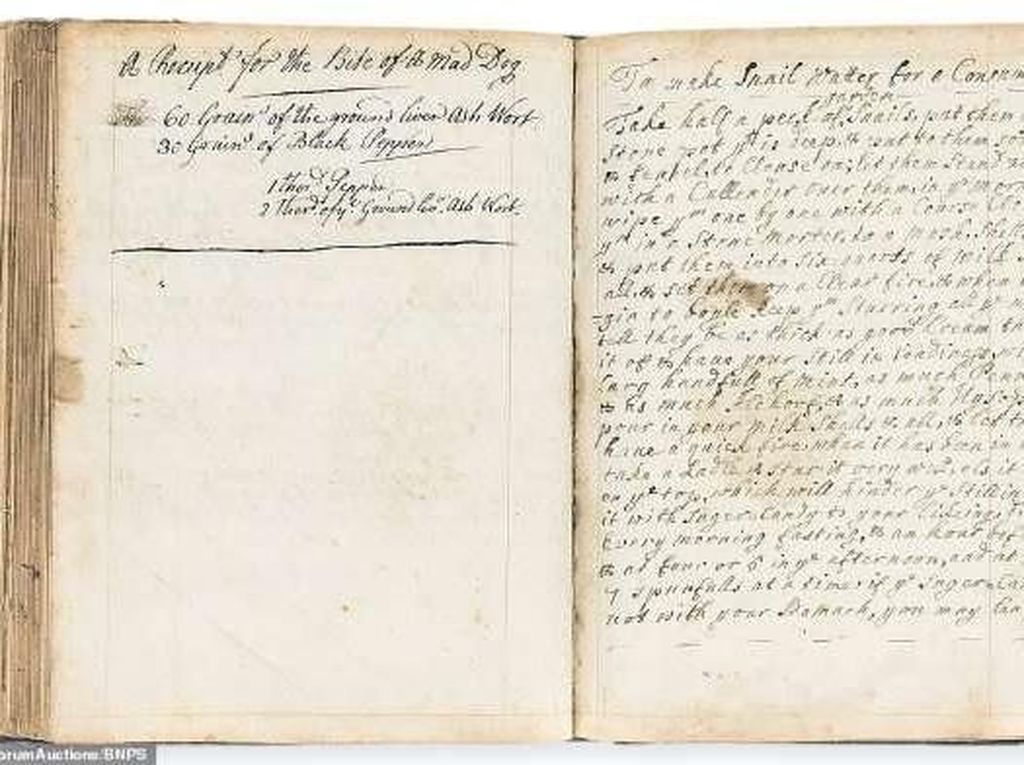 A Receipt for the Bite of a Mad Dog
60 Grains of the ground liver Ash Wort
30 Grains of Black Pepper
1 third Pepper
2 third of ye Ground liv. Ash Wort
To make Snail Watter for a Consum
garden
Take half a peck of Snails, put them
Stone pot yt is deep, & put to them so
to Clense ym; let them Stand
with a Cullender over them in ye mor
wipe ym one by one with a Coarse Clo
ym in a Stone Morter, to a mash, Shell
& put them into six quarts of milk
all, & set them on a Clear fire, & when
gin to boyle keep ym Stirring
till they be as thick as good Cream th
it of & have your Still in
larg handfull of mint, as much
& as much & as much
pour in your milk Snails & all, & let
have a quick fire, when it has been in
take a & Stir it very
on ye top, which will hinder ye Still
it with Suger Candy to your likeing,
Every morning fasting, & an hour bef
& at four or 5 in ye afternoon, and at
7 spunfulls at a time: if ye Suger Can
not with your Stomach, you may
orumAuctions/BNPS